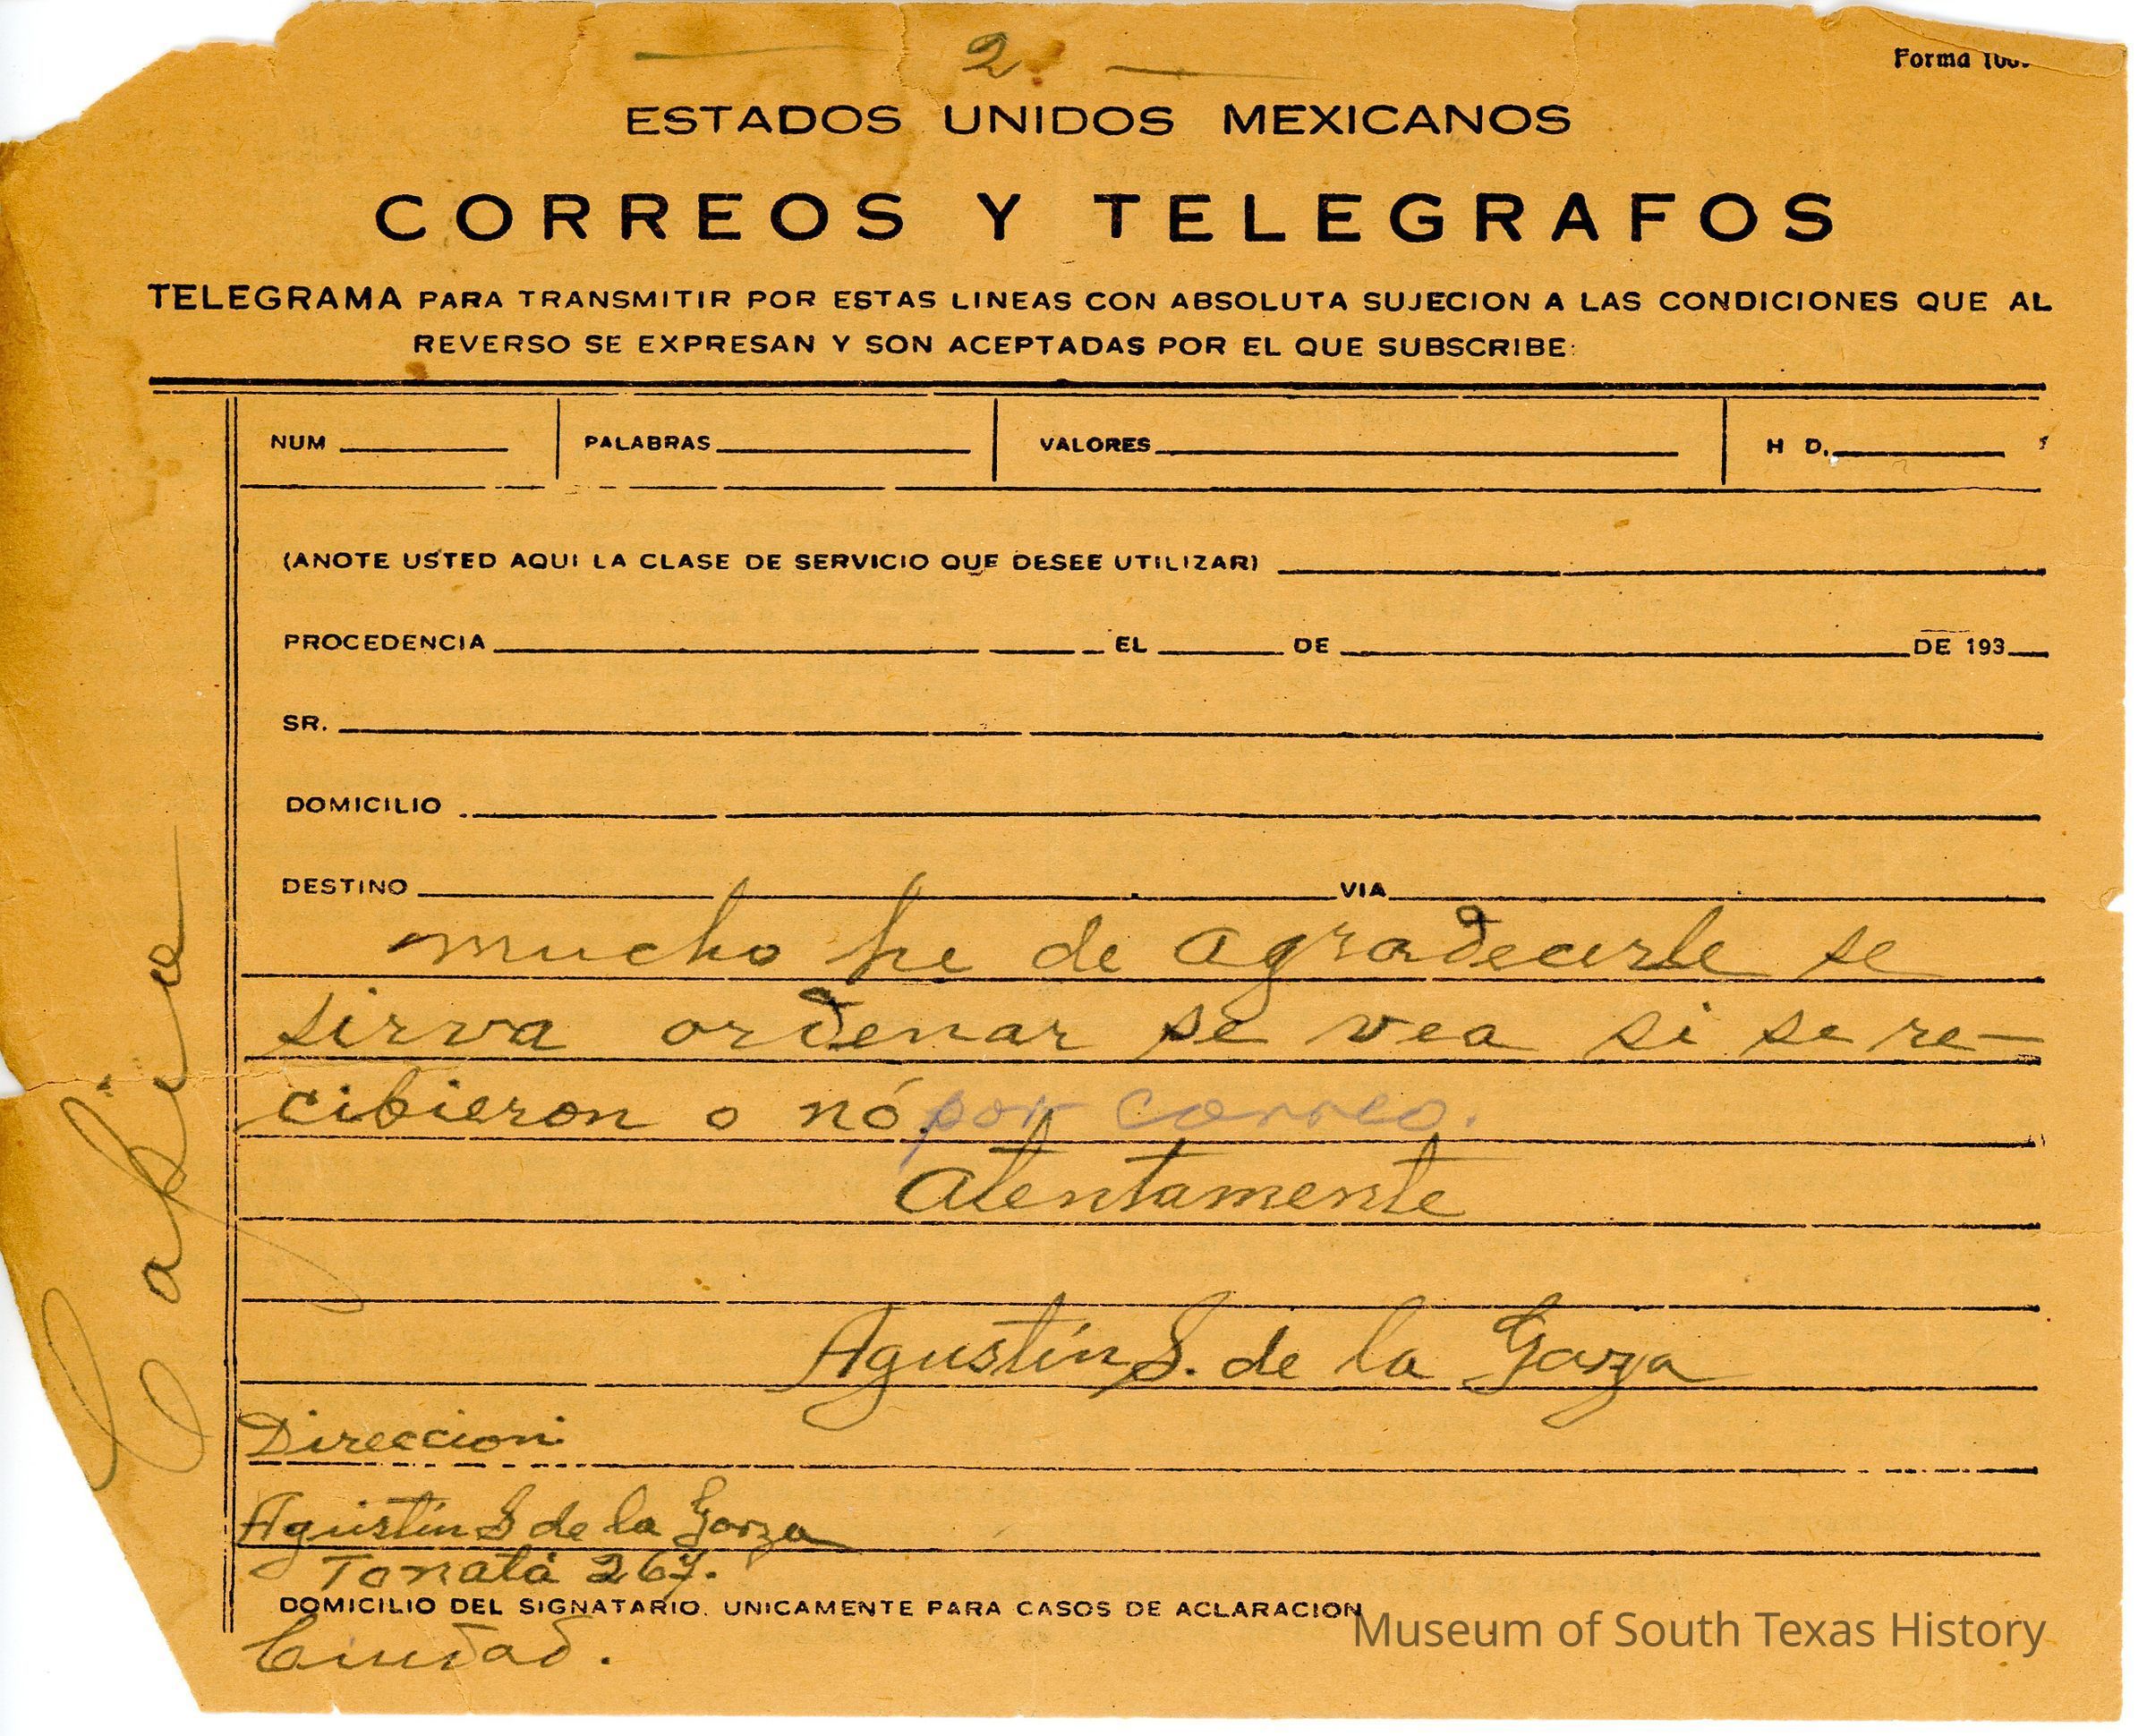 2.
Forma
ESTADOS UNIDOS MEXICANOS
CORREOS Y TELEGRAFOS
TELEGRAMA PARA TRANSMITIR POR ESTAS LINEAS CON ABSOLUTA SUJECION A LAS CONDICIONES QUE AL
REVERSO SE EXPRESAN Y SON ACEPTADAS POR EL QUE SUBSCRIBE:
NUM PALABRAS VALORES H D.
(ANOTE USTED AQUI LA CLASE DE SERVICIO QUE DESEE UTILIZAR)
PROCEDENCIA EL DE DE 193
SR.
DOMICILIO
DESTINO VIA
mucho he de agradecerle se
sirva ordenar se vea si se re-
cibieron o nó. por correo.
Atentamente
Agustín S. de la Garza
Direccion:
Agustin S de la Garza
Tonalá 267.
DOMICILIO DEL SIGNATARIO. UNICAMENTE PARA CASOS DE ACLARACION
Ciudad.
Museum of South Texas History